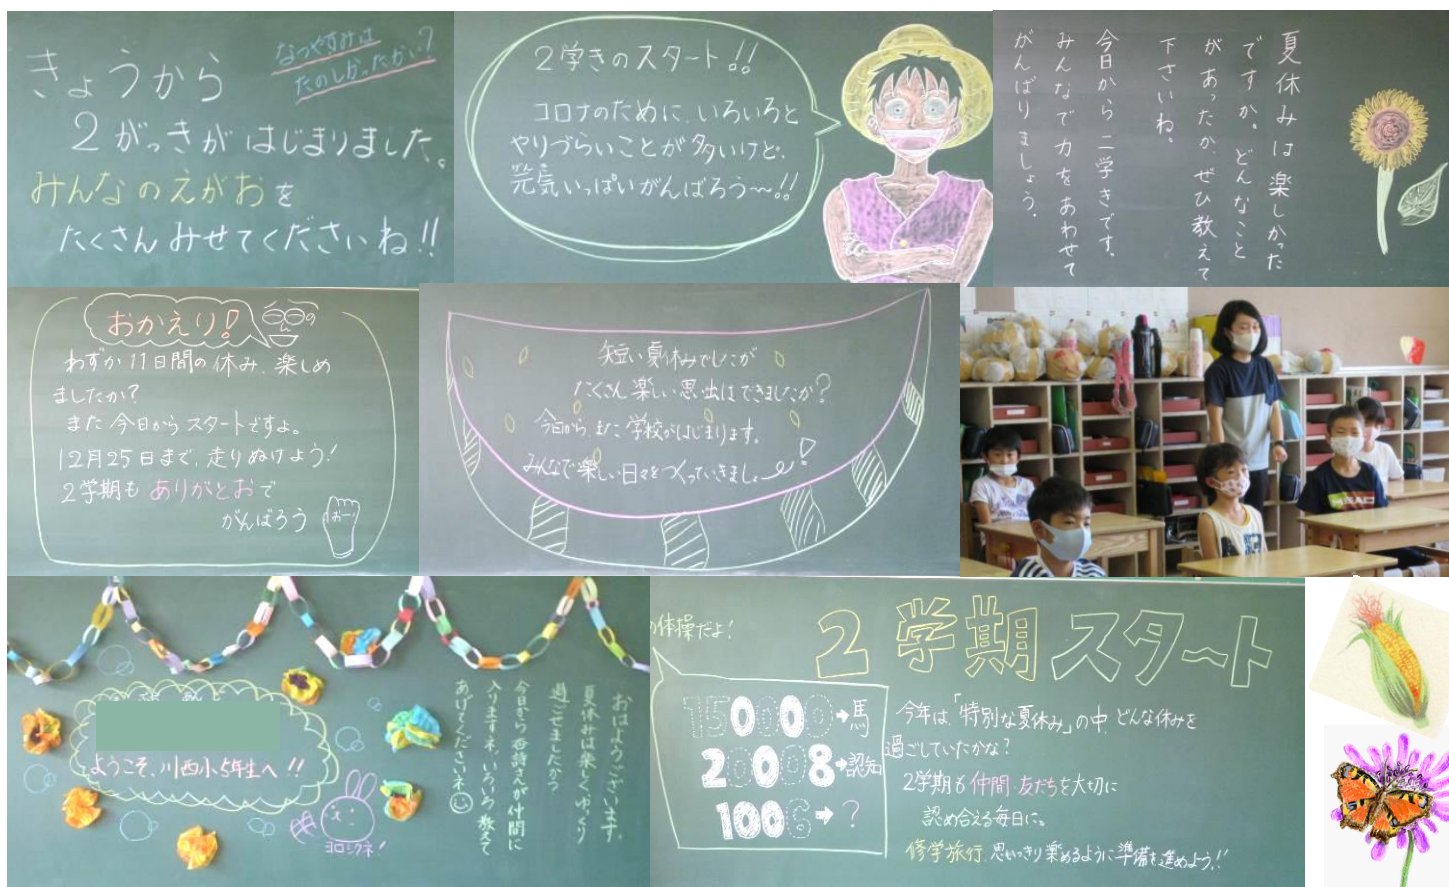 きょうから
なつやすみは
たのしかったかい？
２がっきが はじまりました。
みんなのえがおを
たくさん みせてくださいね!!
２学きのスタート!!
コロナのために、いろいろと
やりづらいことが多いけど、
元気いっぱいがんばろう〜!!
夏休みは楽しかった
ですか。どんなこと
があったか、ぜひ教えて
下さいね。
今日から二学きです。
みんなで力をあわせて
がんばりましょう。
おかえり!
の
わずか11日間の休み、楽しめ
ましたか？
また今日からスタートですよ。
12月25日まで、走りぬけよう!
２学期も ありがとおで
がんばろう
おー
短い夏休みでしたが
たくさん楽しい思い出はできましたか？
今日から、また学校がはじまります。
みんなで楽しい日々をつくっていきましょ
ようこそ、川西小5年生へ!!
ヨロシクネ!
おはようございます。
夏休みは楽しくゆっくり
過ごせましたか？
今日から
さんが仲間に
入りますネ。いろいろ教えて
あげてくださいネ
の体操だよ!
２学期スタート
15000→馬
20008→認知
1006→？
今年は、「特別な夏休み」の中、どんな休みを
過ごしていたかな？
２学期も仲間・友だちを大切に
認め合える毎日に。
修学旅行、思いっきり楽めるように準備を進めよう!!